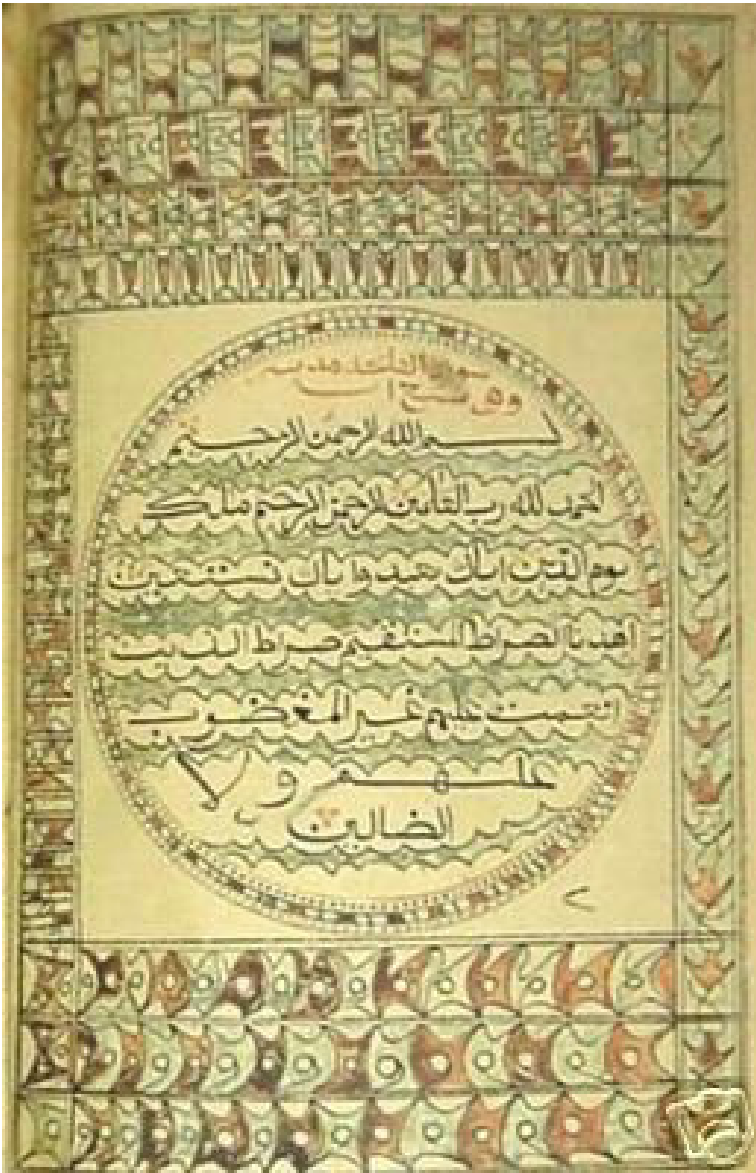 سورة الفاتحة
وهي سبع ايا
بسم الله الرحمن الرحيم
الحمد لله رب العلمين الرحمن الرحيم ملك
يوم الدين اياك نعبد واياك نستعين
اهدنا الصراط المستقيم صراط الذين
انعمت عليهم غير المغضوب
عليهم ولا
الضالين
٢